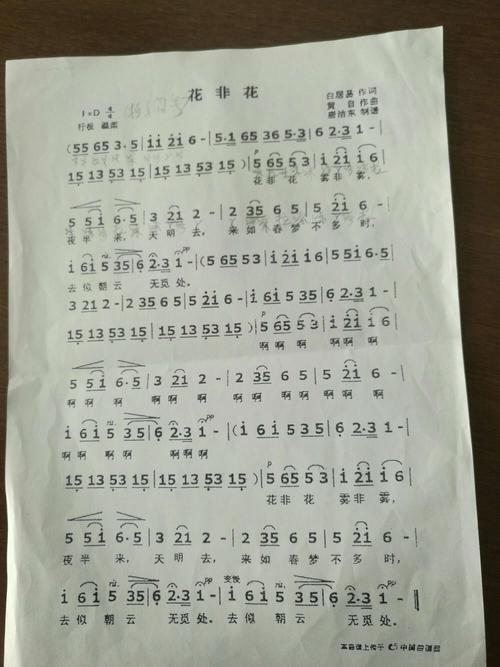 花非花
白居易 作词
1=D 4/4 黄自 作曲
行板 温柔 唐洁东 制谱
(55 65 3·5 | i i 2i 6 - | 5·1 65 36 5·3 | 6 2·3 1 - |
15 13 53 15 | 15 13 53 15 )| 5 65 5 3 | i 2i i 6 |
花非花 雾非雾,
5 5i 6·5 | 3 2i 2 - | 2 35 6 5 | 5 2i 6 i |
夜半来, 天明去, 来如春梦不多时,
i 6i 5 35 | 6 2·3 1 - |( 5 65 53 | i 2i i 6 | 5 5i 6·5 |
去似朝云 无觅处。
3 2i 2 - | 2 35 6 5 | 5 2i 6 i | i 6i 5 35 | 6 2·3 1 - |
15 13 53 15 | 15 13 53 15 )| 5 65 5 3 | i 2i i 6 |
啊啊啊 啊啊啊
5 5i 6·5 | 3 2i 2 - | 2 35 6 5 | 5 2i 6 i |
啊啊啊 啊啊啊 啊啊啊啊啊啊啊
i 6i 5 35 | 6 2·3 1 - |( i 6i 5 35 | 6 2·3 1 - |
啊啊啊啊 啊啊啊
15 13 53 15 | 15 13 53 15 )| 5 65 5 3 | i 2i i 6 |
花非花 雾非雾,
5 5i 6·5 | 3 2i 2 - | 2 35 6 5 | 5 2i 6 i |
夜半来, 天明去, 来如春梦不多时,
变慢
i 6i 5 35 | 6 2·3 1 - | i 6i 5 35 | 6 2·3 1 - ‖
去似朝云 无觅处。 去似朝云 无觅处。